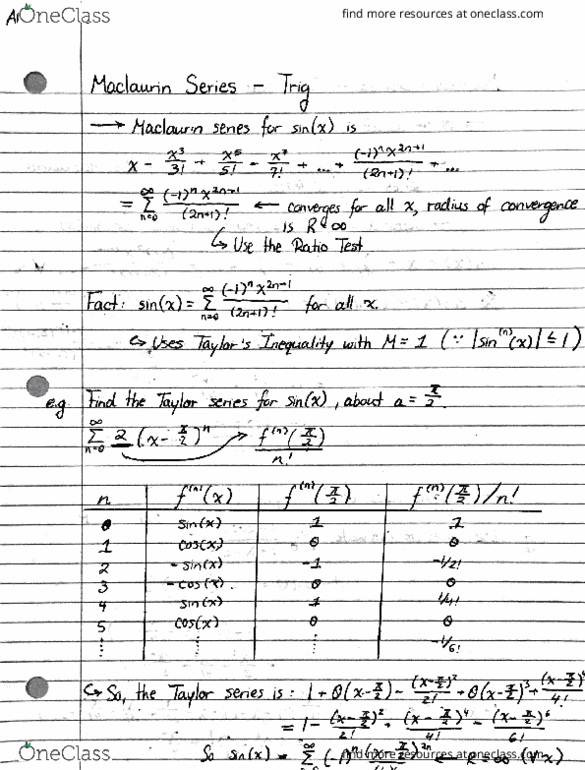 OneClass
find more resources at oneclass.com
Maclaurin Series - Trig
→ Maclaurin series for sin(x) is
x - x³/3! + x⁵/5! - x⁷/7! + ... + (-1)ⁿx²ⁿ⁺¹/(2n+1)! + ...
= ∞ Σ n=0 (-1)ⁿx²ⁿ⁺¹/(2n+1)! ← converges for all x, radius of convergence
is R = ∞
↳ Use the Ratio Test
Fact: sin(x) = ∞ Σ n=0 (-1)ⁿx²ⁿ⁺¹/(2n+1)! for all x.
↳ Uses Taylor's Inequality with M = 1 (∵ |sin⁽ⁿ⁾(x)| ≤ 1)
e.g. Find the Taylor series for sin(x), about a = π/2.
∞ Σ n=0 ? (x - π/2)ⁿ → f⁽ⁿ⁾(π/2)/n!
n f⁽ⁿ⁾(x) f⁽ⁿ⁾(π/2) f⁽ⁿ⁾(π/2)/n!
0 sin(x) 1 1
1 cos(x) 0 0
2 -sin(x) -1 -1/2!
3 -cos(x) 0 0
4 sin(x) 1 1/4!
5 cos(x) 0 0
⋮ ⋮ ⋮ -1/6!
↳ So, the Taylor series is: 1 + 0(x-π/2) - (x-π/2)²/2! + 0(x-π/2)³ + (x-π/2)⁴/4!
= 1 - (x-π/2)²/2! + (x-π/2)⁴/4! - (x-π/2)⁶/6!
So sin(x) = ∞ Σ (-1)ⁿ (x-π/2)²ⁿ ← R = ∞ (∀x)
OneClass
find more resources at oneclass.com